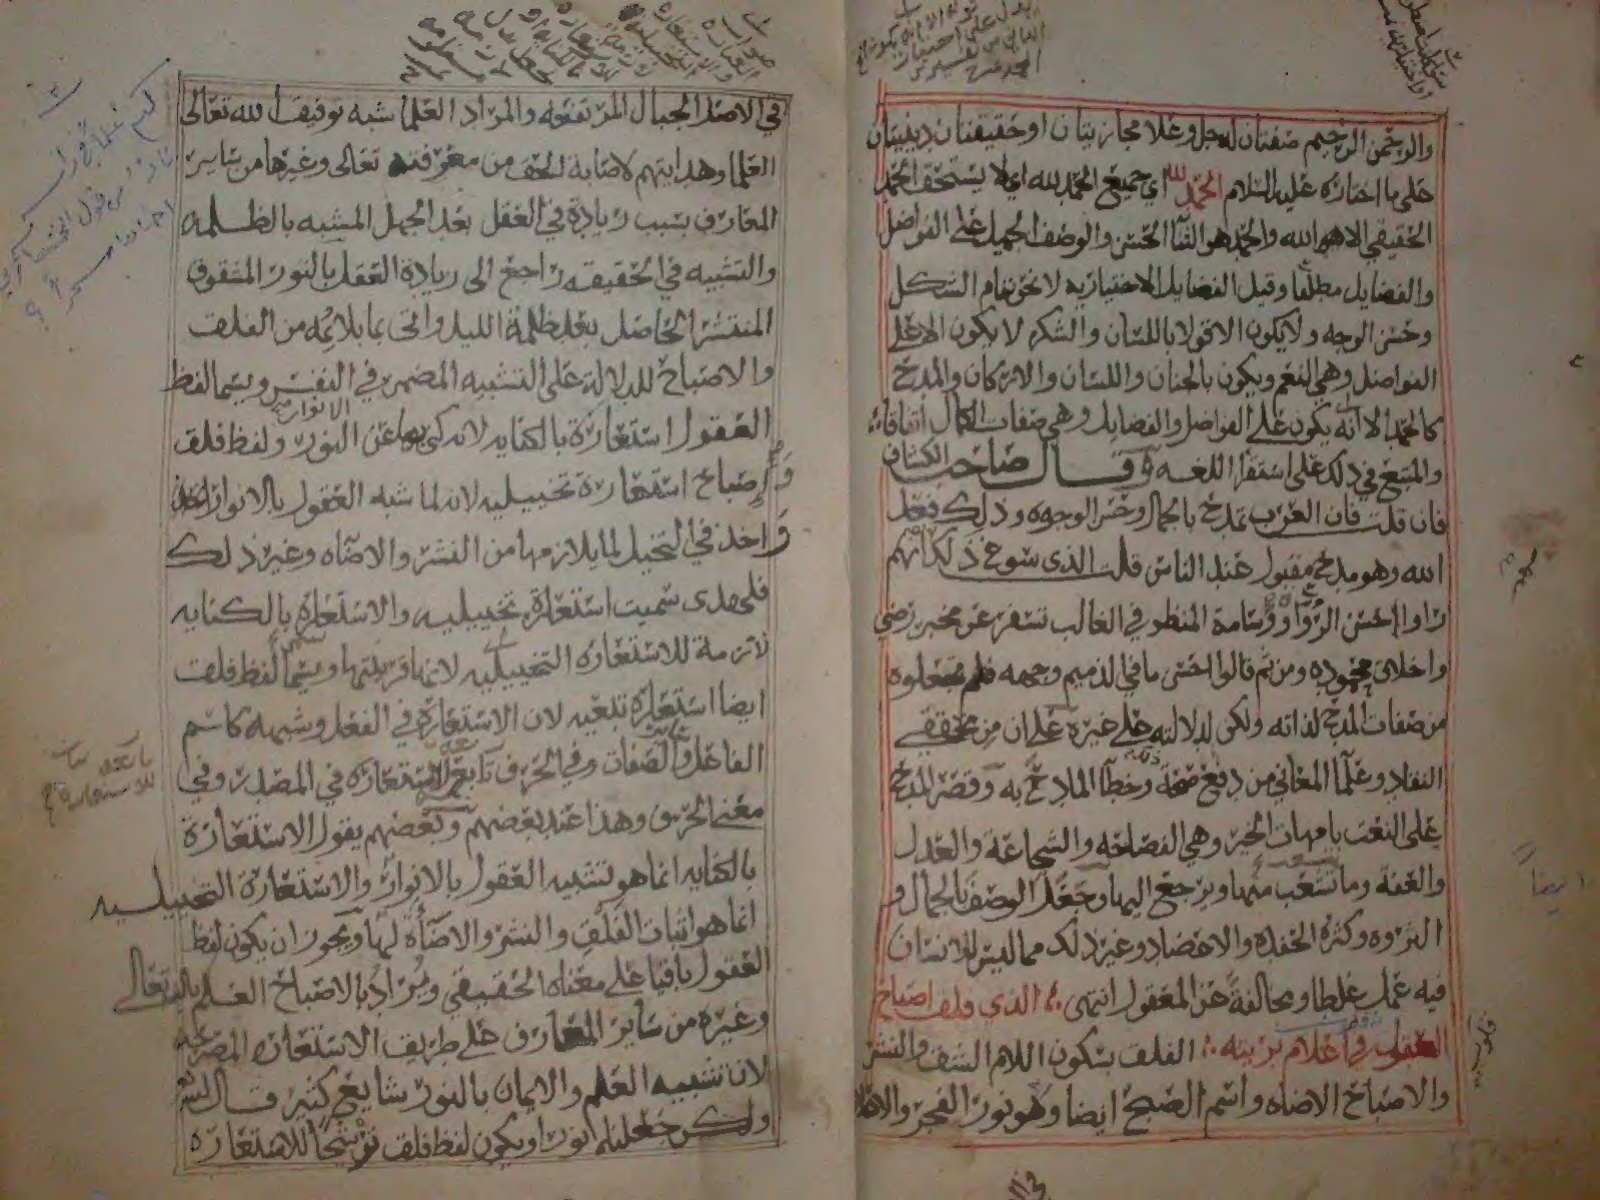 والرحمن الرحيم صفتان له جل وعلا مجازيتان او حقيقتان دينيتان
على ما اختاره عليه السلام الحمد لله اي جميع الحمد لله اي لا يستحق الحمد
الحقيقي الا هو الله والحمد هو الثنا الحسن والوصف الجميل على الفواضل
والفضايل مطلقا وقيل الفضايل الاختياريه لا نحو تمام الشكل
وحسن الوجه ولا يكون الا قولا باللسان والشكر لا يكون الا على
الفواضل وهي النعم ويكون بالجنان واللسان والاركان والمدح
كالحمد الا انه يكون على الفواضل والفضايل وهي صفات الكمال اتفاقا
والمتبع في ذلك على استقرا اللغه وقال صاحب الكشاف
فان قلت فان العرب تمدح بالجمال وحسن الوجوه وذلك فعل
الله وهو مدح مقبول عند الناس قلت الذى سوغ ذلك انهم
راوا حسن الروا ووسامة المنظر في الغالب تسفر عن مخبر رضي
واخلاق محموده ومن ثم قالوا احسن ما في الذميم وجهه فلم يجعلوه
من صفات المدح لذاته ولكن لدلالته على غيره على ان من محققي
النقاد وعلما المعاني من دفع صحة ذلك وخطا المادح به وقصر المدح
على النعت بامهات الخير وهي الفصاحه والشجاعة والعدل
والعفة وما تشعب منها ويرجع اليها وجعل الوصف بالجمال و
الثروه وكثرة الحفدة والاعضاد وغير ذلك مما ليس للانسان
فيه عمل غلطا ومخالفة عن المعقول انتهى الذي فلق اصباح
العقول في اعلام بريته الفلق بسكون اللام الشق والنشر
والاصباح الاضاه واسم الصبح ايضا وهو نور الفجر والاعلام
في الاصل الجبال المرتفعه والمراد العلما شبه توفيق الله تعالى
العلما وهدايتهم لاصابة الحق من معرفته تعالى وغيرها من ساير
المعارف بسبب زيادة في العقل بعد الجهل المشبه بالظلمه
والتشبيه في الحقيقه راجع الى زيادة العقل بالنور المشقوق
المنتشر الحاصل بعد ظلمة الليل واتى بما يلائمه من الفلق
والاصباح للدلالة على التشبيه المضمر في النفس ويسما لفظ
العقول استعارة بالكنايه لانه كنى بها عن الانوار النور ولفظ فلق
واصباح استعارة تخييليه لانه لما شبه العقول بالانوار اخذ
واخذ في التخيل لما يلازمها من النشر والاضاه وغير ذلك
فلهذى سميت استعارة تخييليه والاستعارة بالكنايه
لازمة للاستعاره التخييليه لانها قرينتها ويسما لفظ فلق
ايضا استعارة تبعيه لان الاستعارة في الفعل وشبهه كاسم
الفاعل والصفات وفي الحرف تابعة للاستعارة في المصدر وفي
معنى الحرف وهذا عند بعضهم وبعضهم يقول الاستعارة
بالكنايه انما هو تشبيه العقول بالانوار والاستعارة التخييليه
انما هو اثبات الفلق والنشر والاضاة لها ويجوز ان يكون لفظ
العقول باقيا على معناه الحقيقي ويراد بالاصباح العلم بالله تعالى
وغيره من ساير المعارف على طريق الاستعارة المصرحه
لان تشبيه العلم والايمان بالنور شايع كثير قال الله
ولكن جعلناه نورا ويكون لفظ فلق ترشيحا للاستعارة